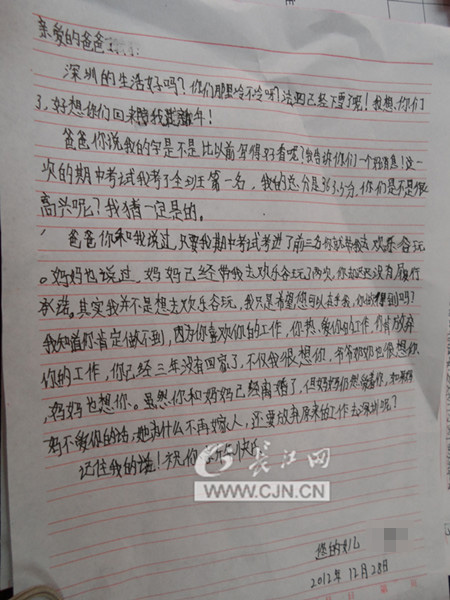 亲爱的爸爸
深圳的生活好吗?你们那里冷不冷呀?这里已经下雪了呢!我想你们
了,好想你们回来陪我
爸爸你说我的字是不是比以前写得好看呢?我告诉你们一个好消息!这一
次的期中考试我考了全班第一名,我的总分是363.5分,你们是不是很
高兴呢?我猜一定是的。
爸爸你和我说过,只要我期中考试考进了前三名你就带我去欢乐谷玩
。妈妈也说过,妈妈已经带我去欢乐谷玩了两次,你却迟迟没有履行
承诺。其实我并不是想去欢乐谷玩,我只是希望您可以在乎我,你做得到吗?
我知道你肯定做不到,因为你喜欢你的工作,你热爱你的工作,你放弃
你的工作,你已经三年没有回家了,不仅我很想你,爷爷奶奶也很想你
,妈妈也想你。虽然你和妈妈已经离婚了,但妈妈仍然爱着你,如果妈
妈不爱你的话,她为什么不再嫁人,还要放弃原来的工作去深圳呢?
记住我的话!祝你 快乐
长江网
WWW.CJN.CN
您的女儿
2012年12月28日